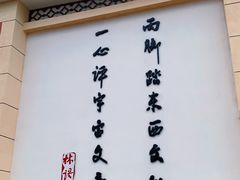 两脚踏东西文
一心评宇宙文
林